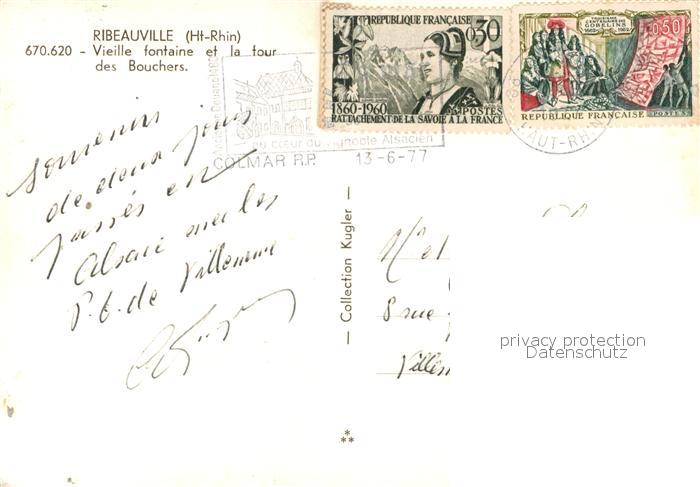 RIBEAUVILLE (Ht-Rhin)
670.620 - Vieille fontaine et la tour
des Bouchers.
RÉPUBLIQUE FRANÇAISE
0,30
1860-1960 POSTES
RATTACHEMENT DE LA SAVOIE À LA FRANCE
TROISIÈME
CENTENAIRE DES
GOBELINS
1662 1962
0,50
REPUBLIQUE FRANÇAISE POSTES
au cœur du vignoble Alsacien
COLMAR R.P. 13-6-77
HAUT-RHIN
souvenir
de deux jours
passés en
Alsace avec les
P.T. de Villeneuve
— Collection Kugler —
8 rue
Villen
privacy protection
Datenschutz